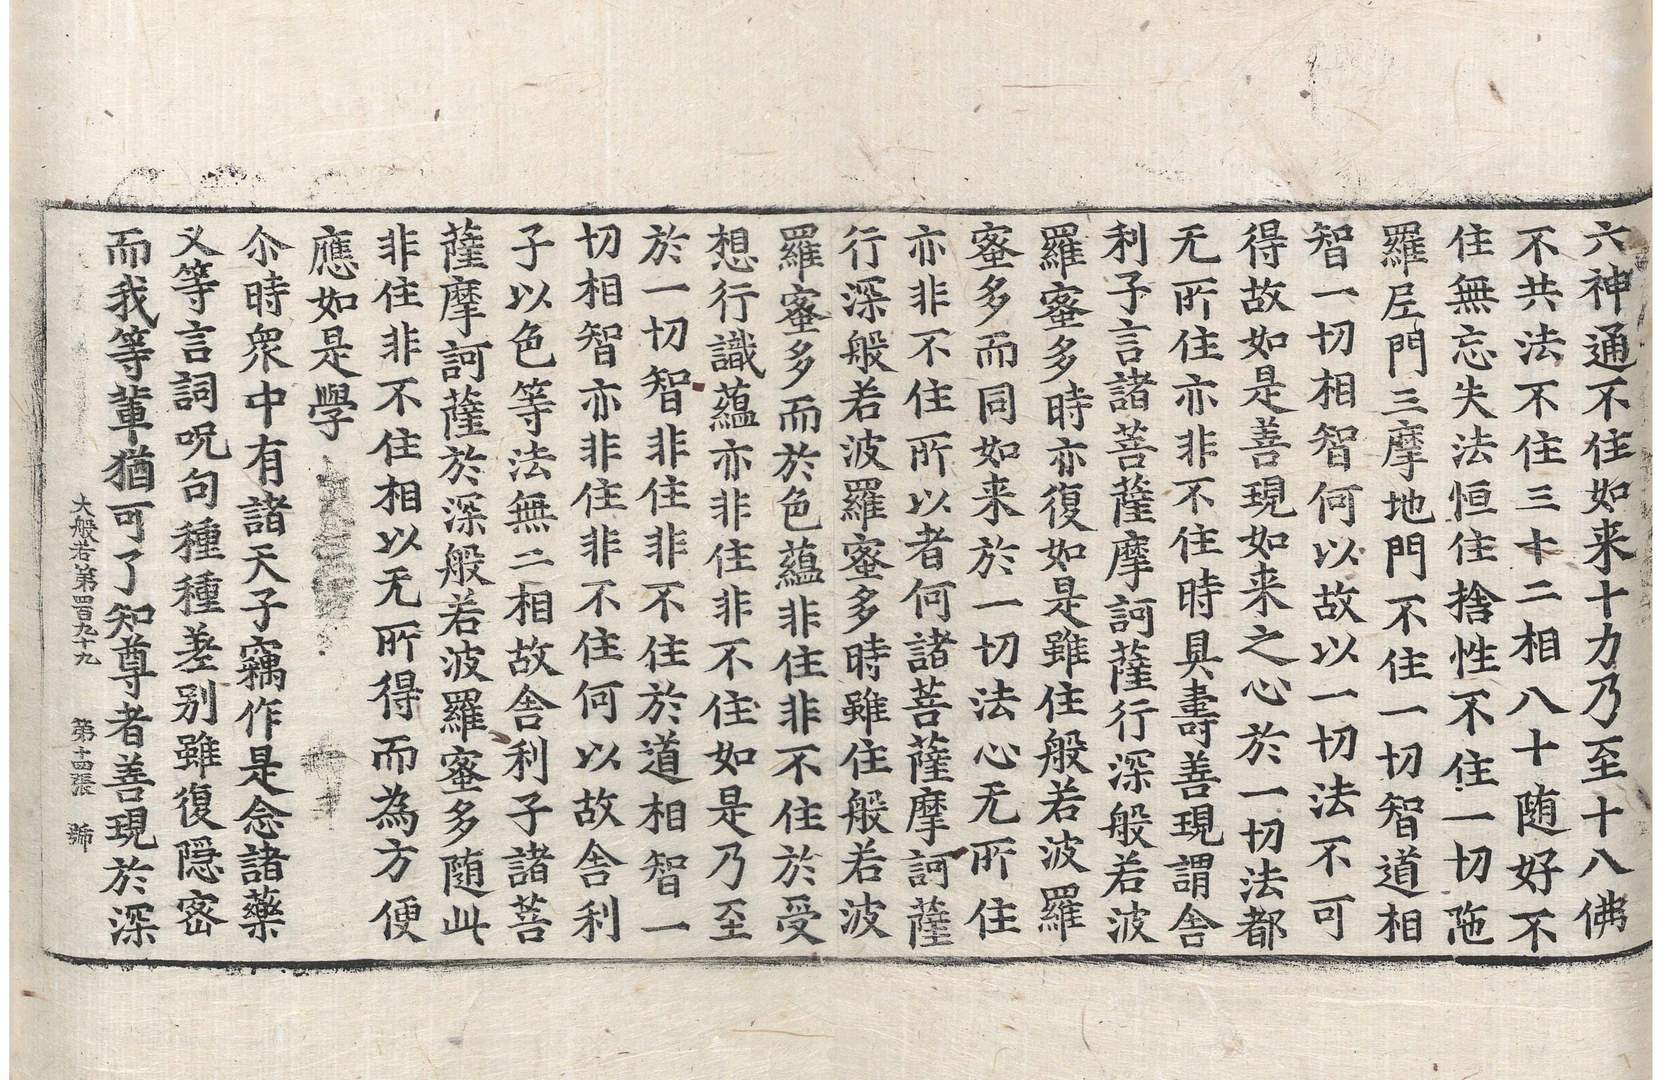 六神通不住如来十力乃至十八佛
不共法不住三十二相八十随好不
住無忘失法恒住捨性不住一切陁
羅尼門三摩地門不住一切智道相
智一切相智何以故以一切法不可
得故如是善現如来之心於一切法都
无所住亦非不住時具壽善現謂舎
利子言諸菩薩摩訶薩行深般若波
羅蜜多時亦復如是雖住般若波羅
蜜多而同如来於一切法心无所住
亦非不住所以者何諸菩薩摩訶薩
行深般若波羅蜜多時雖住般若波
羅蜜多而於色蘊非住非不住於受
想行識蘊亦非住非不住如是乃至
於一切智非住非不住於道相智一
切相智亦非住非不住何以故舎利
子以色等法無二相故舎利子諸菩
薩摩訶薩於深般若波羅蜜多随此
非住非不住相以无所得而為方便
應如是學
尒時衆中有諸天子竊作是念諸藥
叉等言詞呪句種種差别雖復隠宻
而我等輩猶可了知尊者善現於深
大般若第四百九十九 第十四張 号